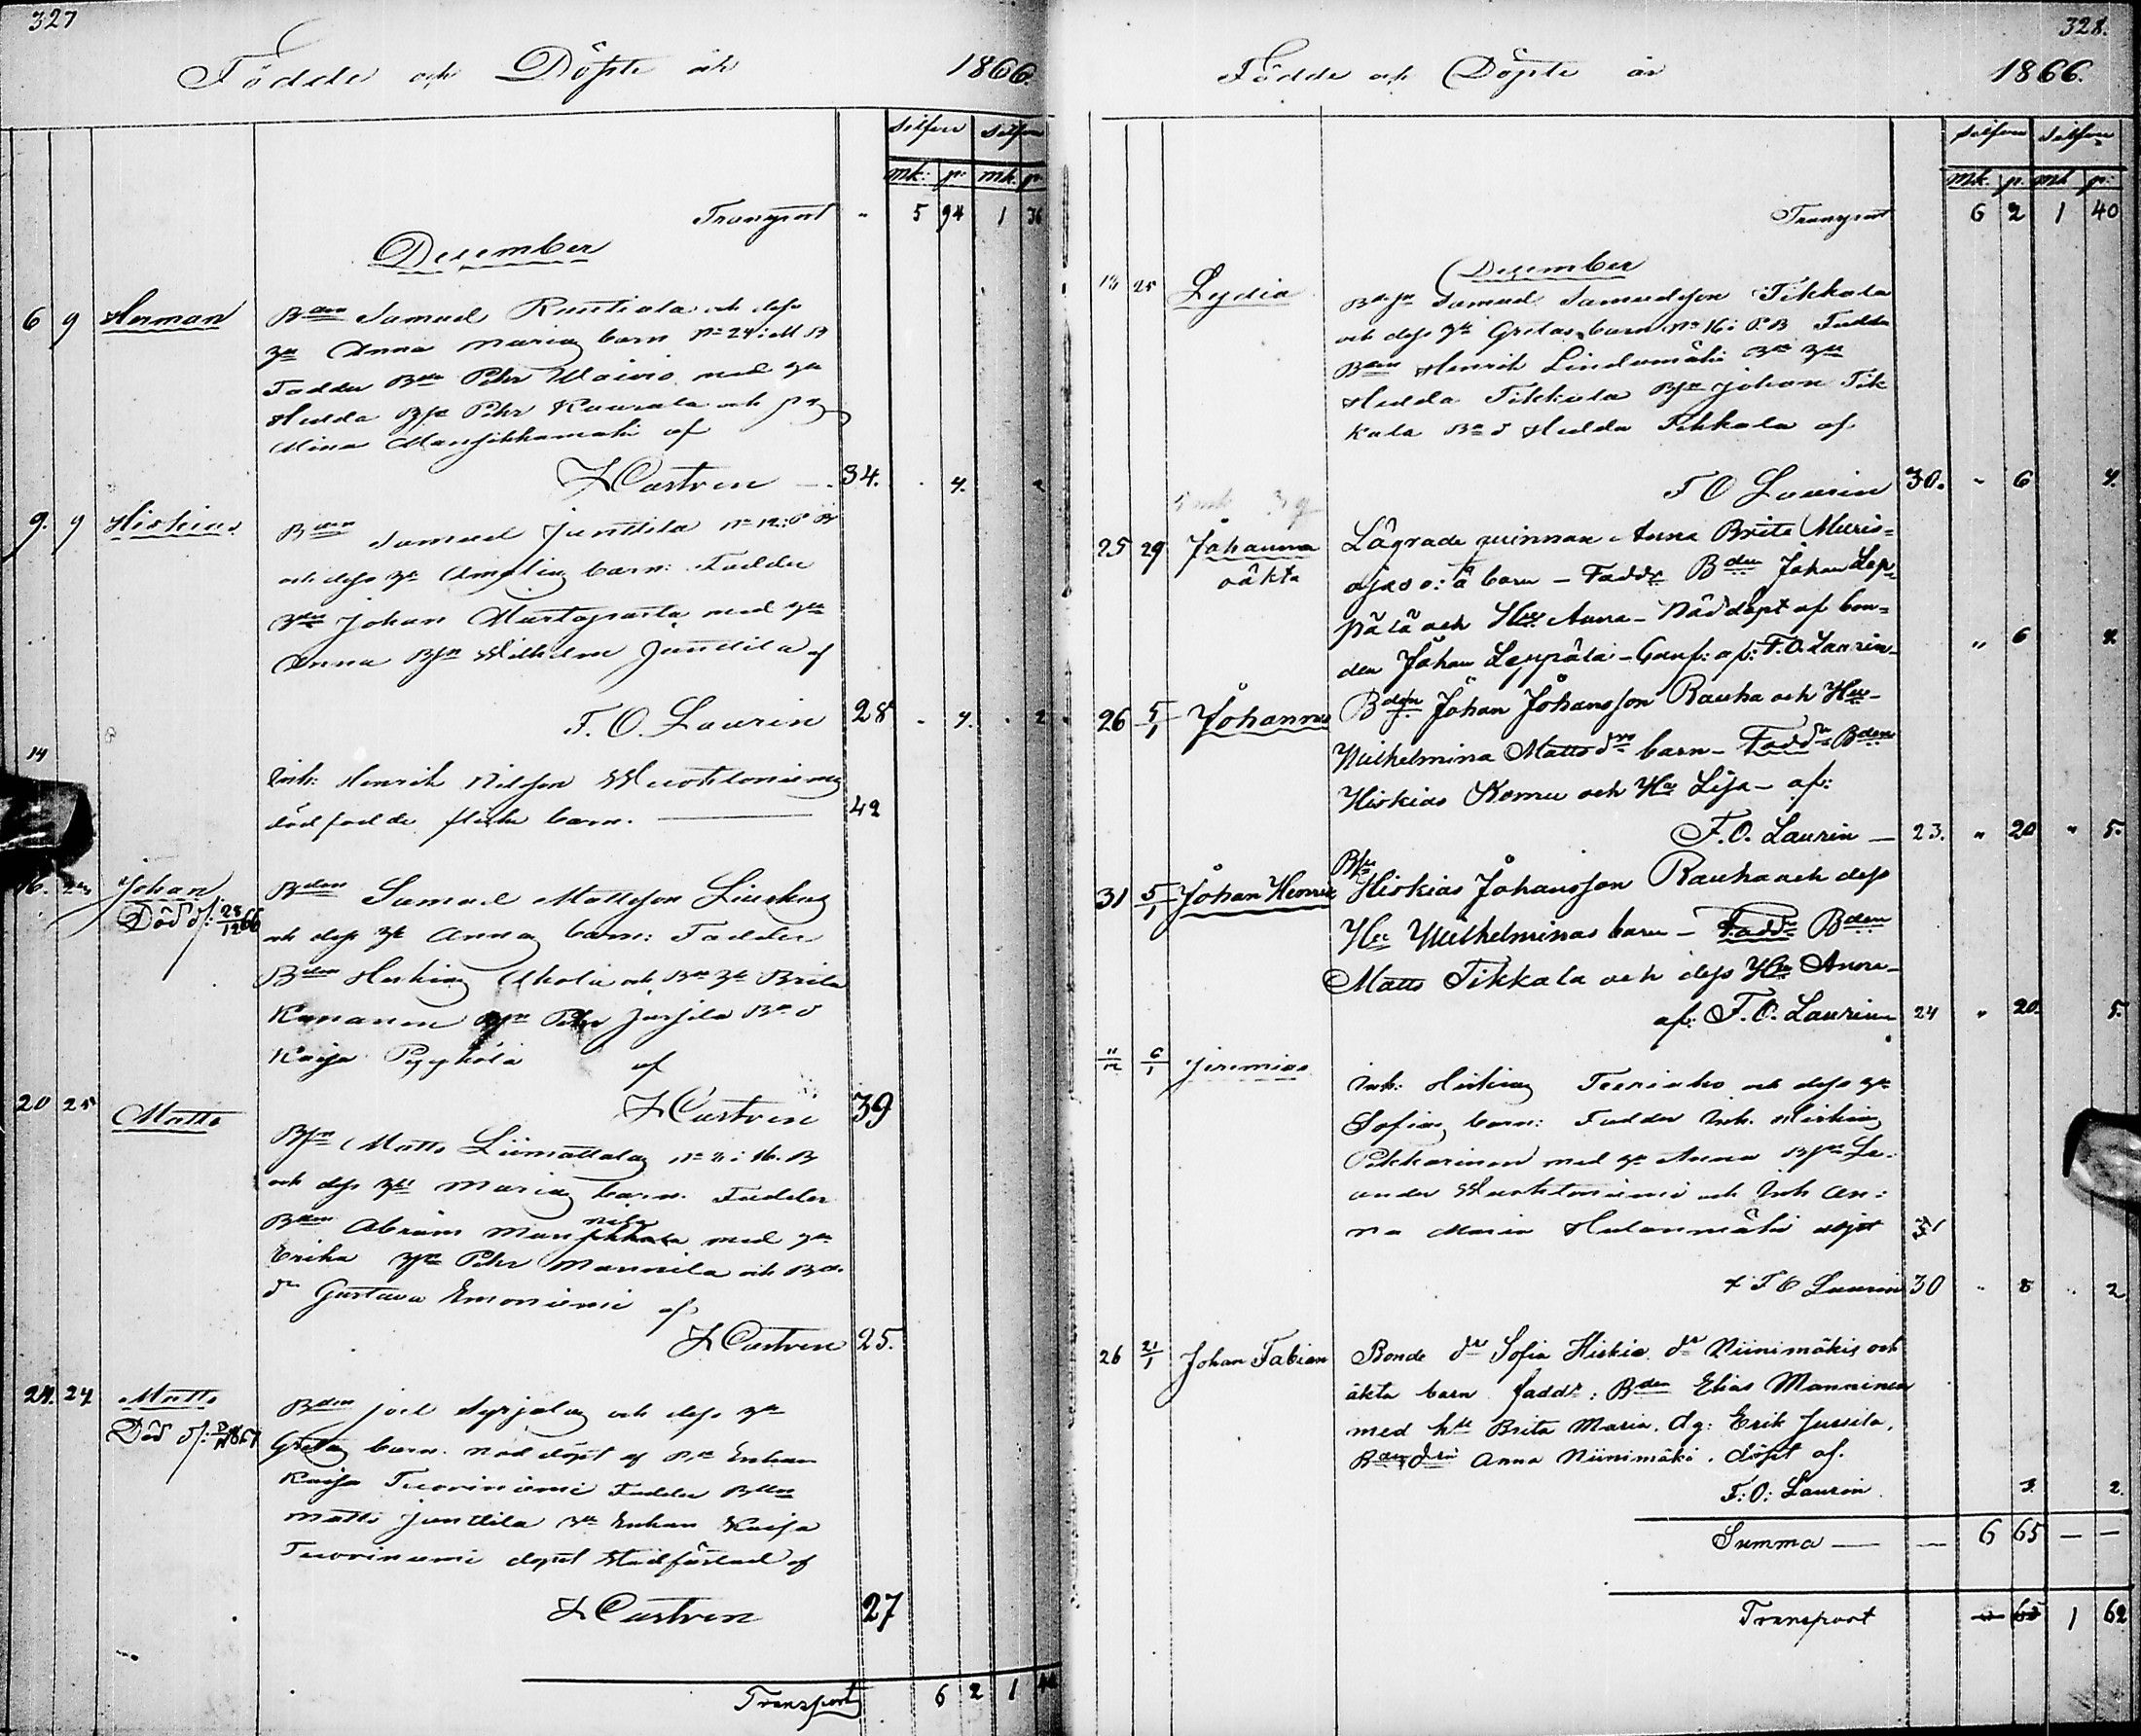 327
Födde och Döpte år 1866.
Silfver Silfver
mk: p: mk. p.
Transport " 5 94 1 36
December
6 9 Herman Bden Samuel Runtiala och dess
Hu Anna Marias barn No 24: M B
Fadder Bden Pehr Wainio med Hu
Hedda Bsn Pehr Kaurala och pig
Mina Mansikkamäki af
Castren 34. 4. 2
9. 9 Hiskias Bden Samuel Junttila No 12: P B
och dess Hu Amalias barn: Fadder
Bden Johan Martaparta med Hu
Anna Bsn Wilhelm Junttila af
F. O. Laurin 28 4. 2
14 Inh: Henrik Nilsson Wuohtoniemis
dödfödde flicke barn. 42
16. 25 Johan Bden Samuel Mattsson
Död d: 28/12 66 och dess Hu Annas barn: Fadder
Bden Hiskias Ahola och Bde Hu Brita
Kananen Bsn Pehr Jussila Bde d
Kaisa Pyykölä af
Castren 39
20 25 Matts Bsn Matts Liimattalas
och dess Hu Marias barn. Fadder
Bden Abram Mannila med Hu
Erika Bsn Pehr Mannila och Bde
dr Gustava Emoniemi af
Castren 25.
24. 27 Matts Bden Joel Syrjälas och dess Hu
Död d: 1867 Gretas barn. nöddöpt af Enkan
Kaisa Tuoriniemi Fadder Bden
Matts Junttila Enkan Kaisa
Tuoriniemi döpet stadfästad af
Castren 27
Transport 6 2 1 40
328.
Födde och Döpte år 1866.
Silfver Silfver
mk. p. mk p:
Transport 6 2 1 40
December
25 Lydia Bdesn Samuel Samuelsson Tikkala
och dess Hu Gretas barn No 16: P B Fadder
Bden Henrik Lindumäki Bde Hu
Hedda Tikkala Bsn Johan Tik
kala Bde d Hedda Tikkala af
F O Laurin 30. " 6 4.
25 29 Johanna Lägrade quinnan Anna Brita Muris=
oäkta ojas o: ä barn - Faddr Bden Johan Lep=
pälä och Hu Anna - Nöddöpt af bon=
den Johan Leppälä - Conf: af: F. O. Laurin - " 6 4.
26 5/1 Johannes Bdesn Johan Johansson Rauha och Hu -
Wilhelmina Mattsdrs barn - Faddr Bden
Hiskias Komu och Hu Lisa - af:
F. O. Laurin - 23. " 20 " 5.
31 5/1 Johan Henrik Bsn Hiskias Johansson Rauha och dess
Hu Wilhelminas barn - Faddr Bden
Matts Tikkala och dess Hu Anna -
af: F. O. Laurin 24 " 20. 5.
11/12 6/1 Jeremias Inh: Hiskias Teeriaho och dess Hu
Sofias barn: Fadder Inh. Hiskias
Pekkarinen med Hu Anna Bsn Le-
ander Wuohtoniemi och Inh An:
na Maria Hulanmäki
F O Laurin 30 " 8 " 2
26 21/1 Johan Fabian Bonde dr Sofia Hiskia dr Niinimäkis oek
äkta barn. faddr: Bden Elias Manninen
med hu Brita Maria. dg: Erik Jussila.
Anna Niinimäki. döpt af.
F: O: Laurin. 3. 2.
Summa — — 6 65 — —
Transport 65 1 62